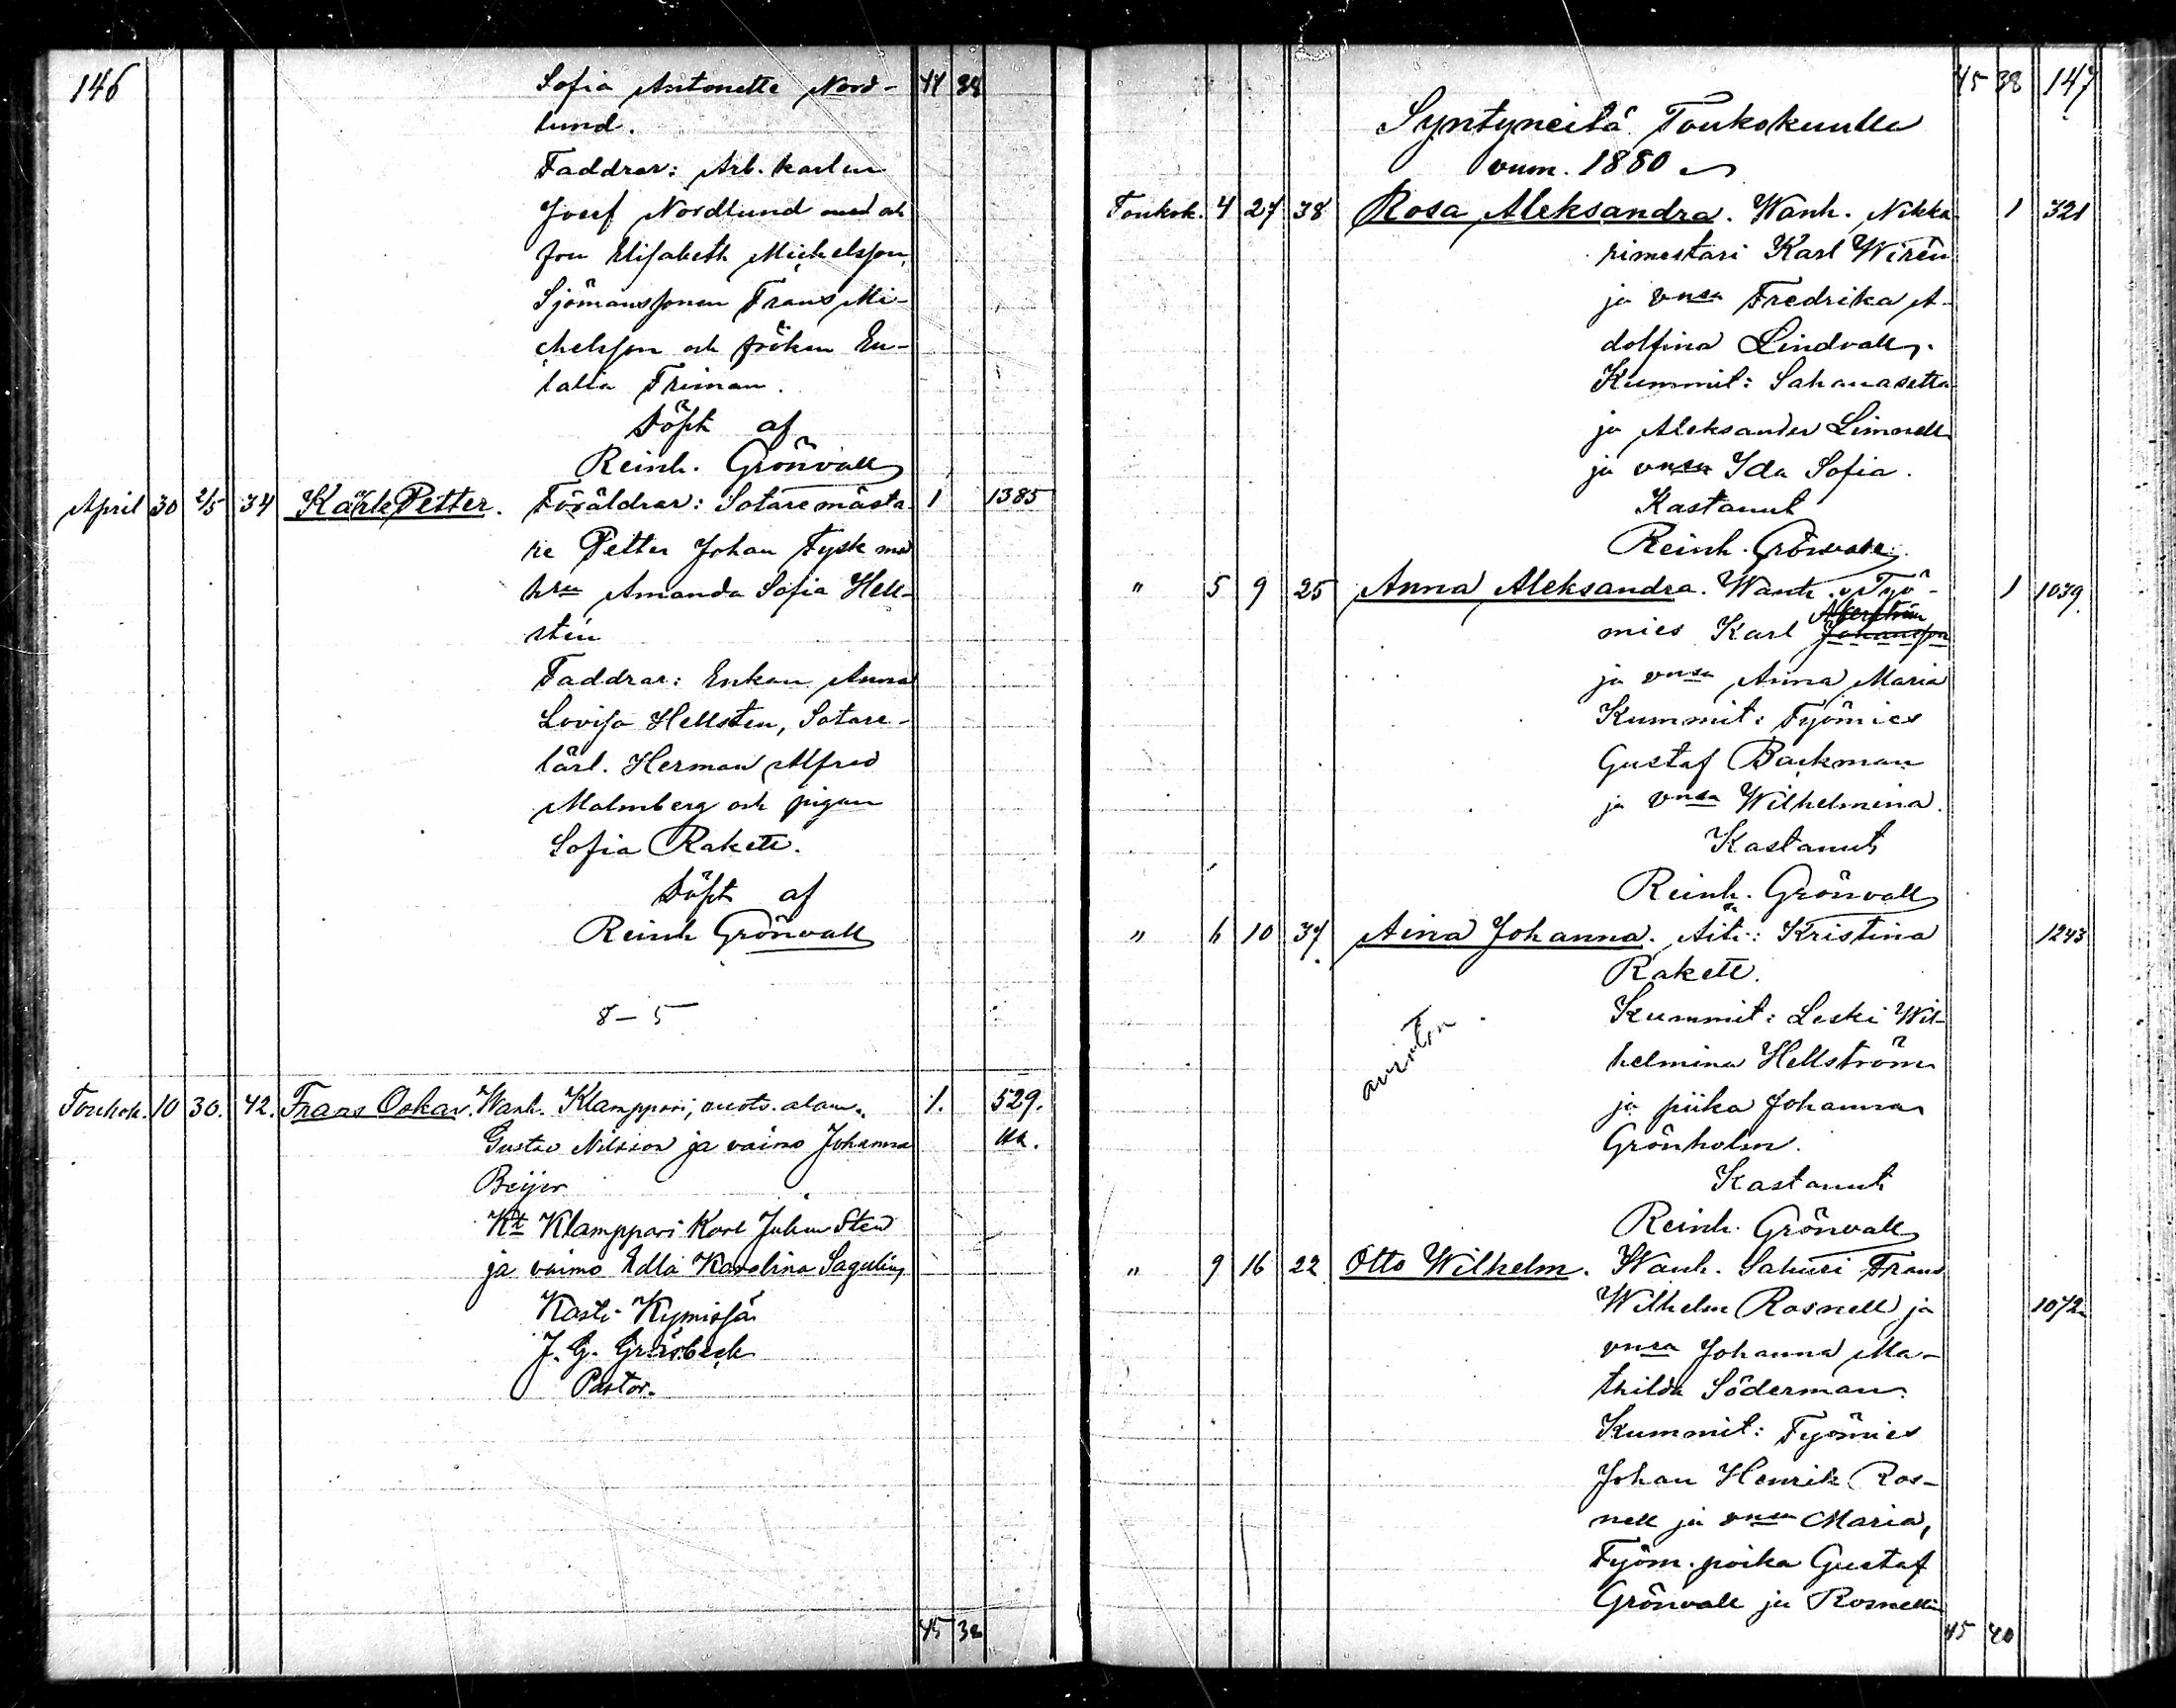 146
Sofia Antonette Nord- 44 38
lund.
Faddrar: Arb. karlen
Josef Nordlund med och
Elisabeth Michelsson,
Sjömanssonen Frans Mi-
chelsson och fröken Eu-
lalia Friman.
Döpt af
Reinh. Grönvall
April 30 2/5 34 Karl Petter. Föräldrar: Sotaremästa- 1 1385
re Petter Johan Tysk med
hru Amanda Sofia Hell-
stén
Faddrar: Enkan Anna
Lovisa Hellsten, Sotare-
lärl. Herman Alfred
Malmberg och pigan
Sofia Rakette.
Döpt af
Reinh Grönvall
8-5
Toukok. 10 30. 42. Frans Oskar. Wanh. Klamppari, ruots. alam. 1. 529.
Gustav Nilsson ja vaimo Johanna
Beijer
Kt Klamppari Karl Julius Sten
ja vaimo Edla Karolina Sagulin
Kasti Kymissä
J. G. Gräsbeck
Pastor.
45 38
45 38 147
Syntyneitä Toukokuulla
vuon. 1880
Toukok. 4 27 38 Rosa Aleksandra. Wanh. Nikka- 1 321
rimestari Karl Wirén
ja vnsa Fredrika A-
dolfina Lindvall.
Kummit: Sahanasetta-
ja Aleksander Limnell
ja vnsa Ida Sofia.
Kastanut
Reinh. Grönvall
" 5 9 25 Anna Aleksandra. Wanh. Työ- 1 1039
Åkerström
mies Karl Johansson
ja vnsa Anna Maria
Kummit: Työmies
Gustaf Backman
ja vnsa Wilhelmina.
Kastanut
Reinh. Grönvall
" 6 10 37 Aina Johanna. Äiti: Kristina 1243
Rakette.
Kummit: Leski Wil-
avioton
helmina Hellström
ja piika Johanna
Grönholm.
Kastanut
Reinh. Grönvall
" 9 16 22 Otto Wilhelm. Wanh. Sahuri Frans
Wilhelm Rosnell ja 1072
vnsa Johanna Ma-
thilda Söderman.
Kummit: Työmies
Johan Henrik Ros-
nell ja vnsa Maria,
Työm. poika Gustaf
Grönvall ja Rosnellin
45 40